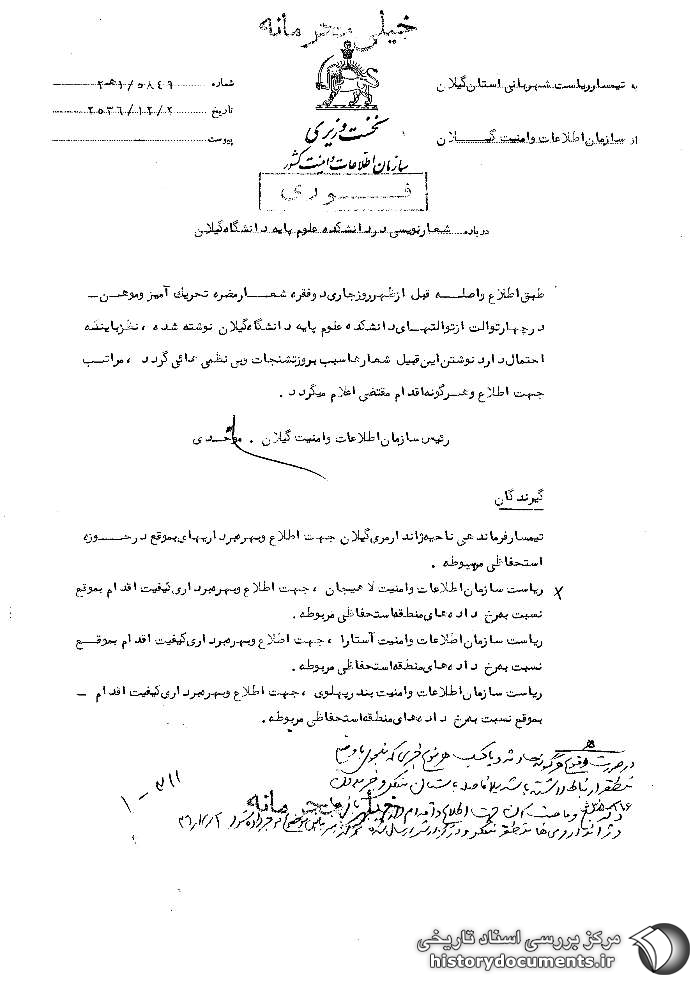 خیلی محرمانه
به تیمسار ریاست شهربانی استان گیلان
شماره ۵۸۴۹/
تاریخ ۲۵۳۶/۱۲/۲
از سازمان اطلاعات وامنیت گیلان
پیوست
نخست وزیری
سازمان اطلاعات وامنیت کشور
فوری
درباره شعارنویسی دردانشکده علوم پایه دانشگاه گیلان
طبق اطلاع واصله قبل ازظهرروزجاری دوفقره شعارمضره تحریک آمیز وموهن
درچهارتوالت ازتوالتهای دانشکده علوم پایه دانشگاه گیلان نوشته شده ، نظرباینکه
احتمال دارد نوشتن این قبیل شعارهاسبب بروزتشنجات وبی نظمی هائی گردد ، مراتب
جهت اطلاع وهرگونه اقدام مقتضی اعلام میگردد .
رئیس سازمان اطلاعات وامنیت گیلان . موحدی
گیرندگان
تیمسارفرماندهی ناحیه ژاندارمری گیلان جهت اطلاع وبهره برداریهای بموقع درحوزه
استحفاظی مربوطه .
ریاست سازمان اطلاعات وامنیت لاهیجان ، جهت اطلاع وبهره برداری کیفیت اقدام بموقع
نسبت به رخ داده های منطقه استحفاظی مربوطه .
ریاست سازمان اطلاعات وامنیت آستارا ، جهت اطلاع وبهره برداری کیفیت اقدام بموقع
نسبت به رخ داده های منطقه استحفاظی مربوطه .
ریاست سازمان اطلاعات وامنیت بندرپهلوی ، جهت اطلاع وبهره برداری کیفیت اقدام
بموقع نسبت به رخ داده های منطقه استحفاظی مربوطه .
درصورت وقوع هرگونه
۳۱۱ - ۱
خیلی محرمانه
مرکز بررسی اسناد تاریخی
historydocuments.ir